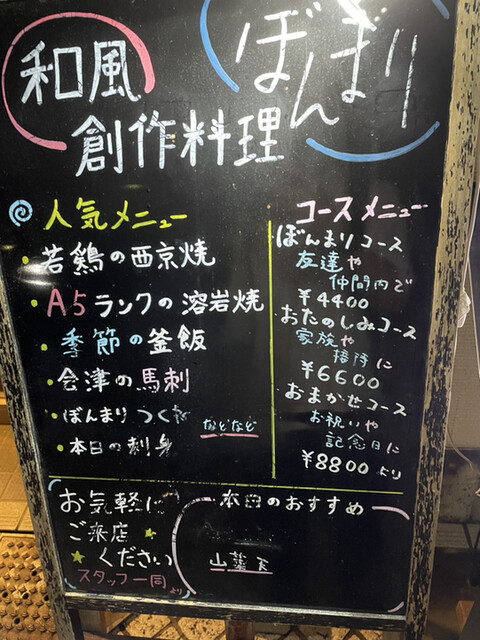 和風
ぼんまり
創作料理
人気メニュー
・若鶏の西京焼
・A5ランクの溶岩焼
・季節の釜飯
・会津の馬刺
・ぼんまりつくね
・本日の刺身
などなど
コースメニュー
・ぼんまりコース
友達や
仲間内で
¥4400
・おたのしみコース
家族や
接待に
¥6600
・おまかせコース
お祝いや
記念日に
¥8800より
お気軽に
ご来店
ください
スタッフ一同より
本日のおすすめ